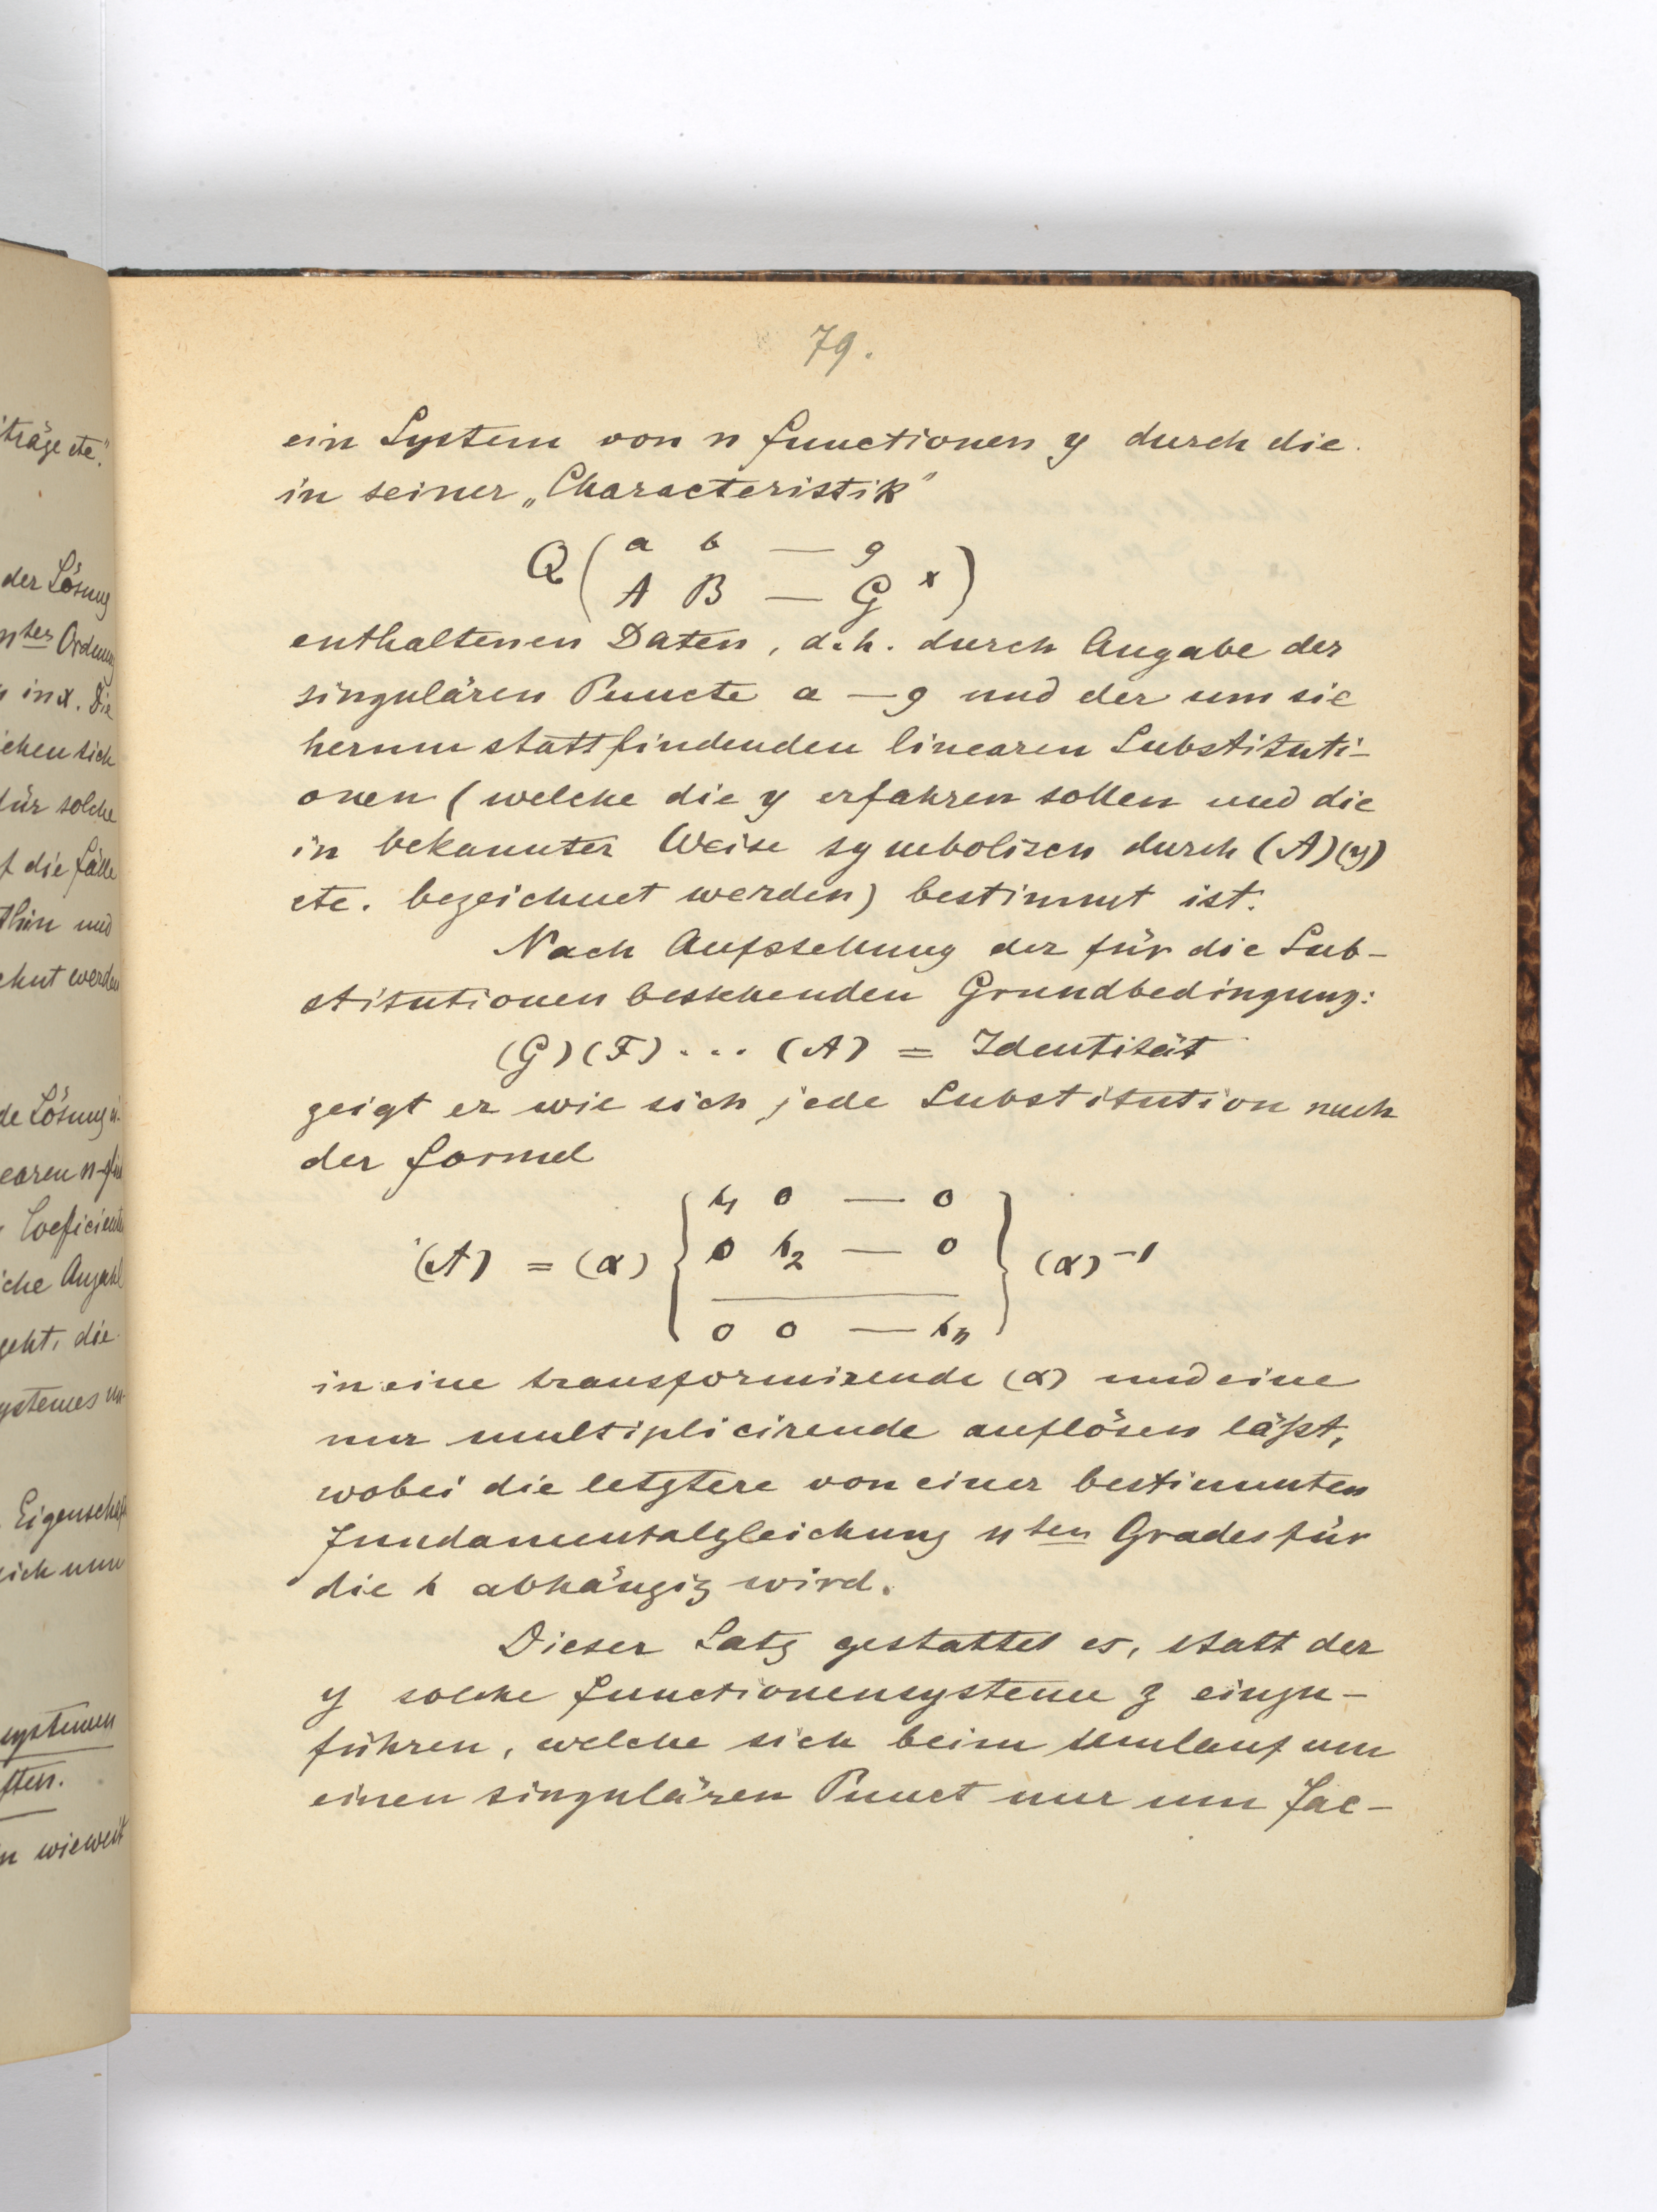 79.
ein System von n Functionen y durch die
in seiner „Characteristik“
Q ( a b — g
A B — G x )
enthaltenen Daten, d. h. durch Angabe der
singulären Puncte a — g und der um sie
herum stattfindenden linearen Substituti-
onen (welche die y erfahren sollen und die
in bekannter Weise symbolisch durch (A)(y)
etc. bezeichnet werden) bestimmt ist.
Nach Aufstellung der für die Sub-
stitutionen bestehenden Grundbedingung:
(G)(F) ... (A) = Identität
zeigt er wie sich jede Substitution nach
der Formel
(A) = (α) { s₁ 0 — 0
0 s₂ — 0
0 0 — sₙ } (α)⁻¹
in eine transformirende (α) und eine
nur multiplicirende auflösen läßt,
wobei die letztere von einer bestimmten
Fundamentalgleichung nten Grades für
die s abhängig wird.
Dieser Satz gestattet es, statt der
y solche Functionensysteme z einzu-
führen, welche sich beim Umlauf um
einen singulären Punct nur um Fac-
träge etc."
der Lösung
nter Ordnung
in x. Die
für solche
die Fälle
thin und
werden
de Lösung
Coeficienten
che Anzahl
geht, die
ystemes
Eigenschaf
sich nun
systemen
ften.
wieweit